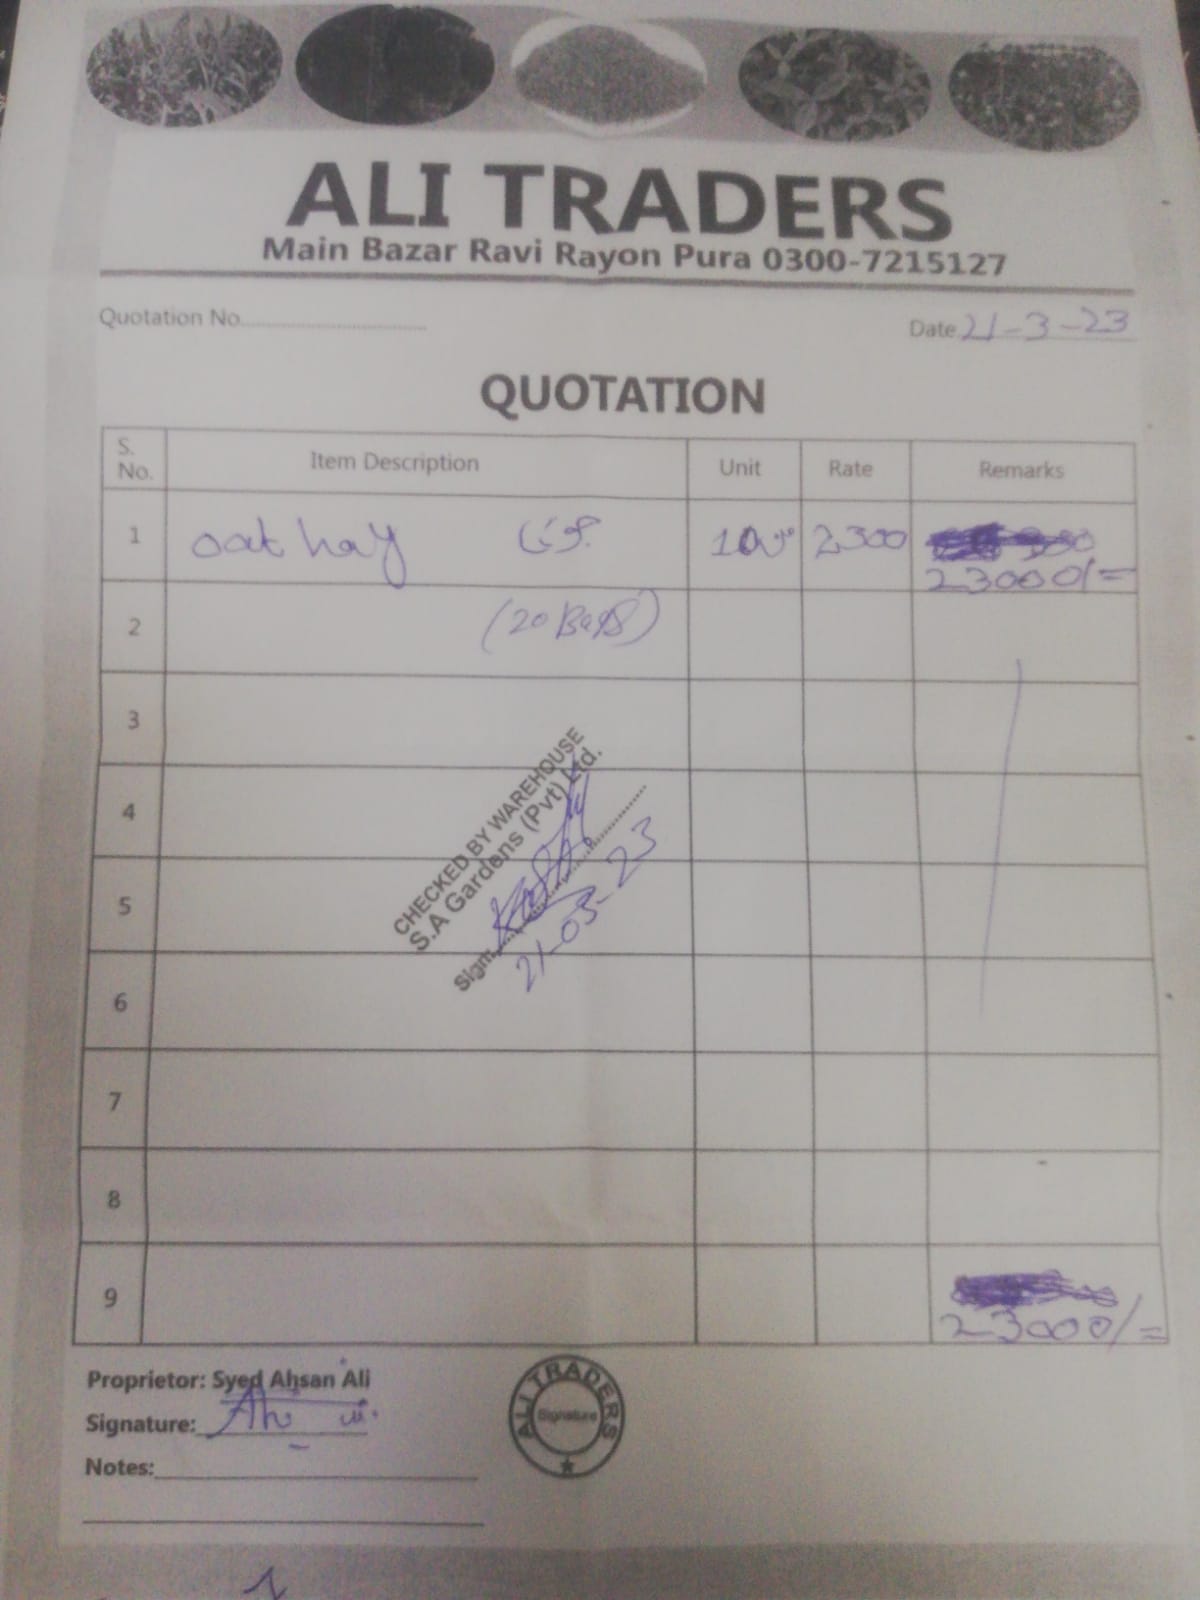 ALI TRADERS
Main Bazar Ravi Rayon Pura 0300-7215127
Quotation No.
Date 21-3-23
QUOTATION
S. No. Item Description Unit Rate Remarks
1 oat hay 10 2300
23000/=
2 (20 Bags)
3
4
5
6
7
8
9
23000/=
CHECKED BY WAREHOUSE
S.A Gardens (Pvt) Ltd.
Sign.
21-03-23
Proprietor: Syed Ahsan Ali
Signature:
Notes:
ALI TRADERS
Signature